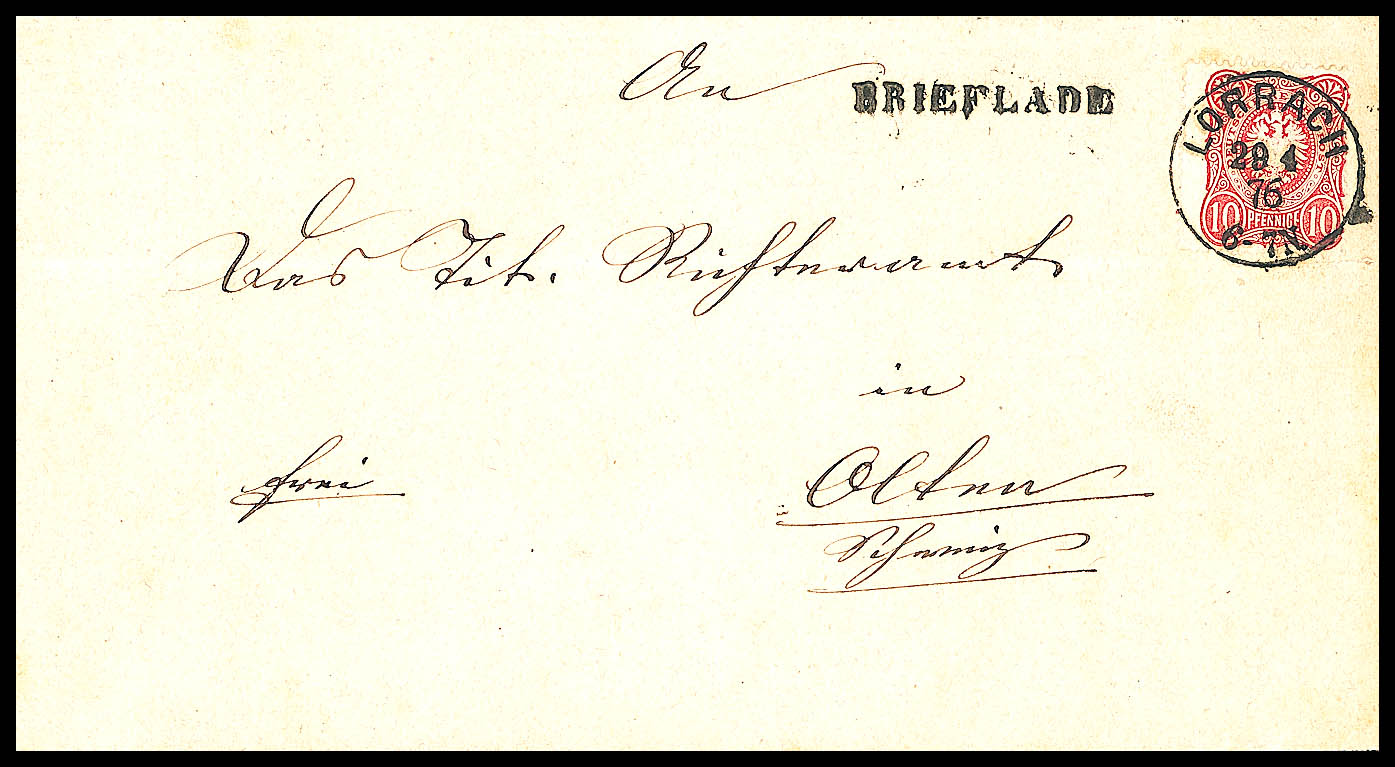 An
BRIEFLADE
LÖRRACH
29 4
76
6-7N
10 PFENNIGE 10
Das Tit. Richteramt
in
frei
Olten
Schweiz